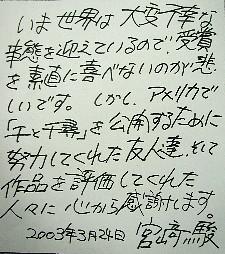 いま世界は大変不幸な
事態を迎えているので受賞
を素直に喜べないのが悲
しいです。しかし、アメリカで
「千と千尋」を公開するために
努力してくれた友人達、そして
作品を評価してくれた
人々に心から感謝します。
2003年3月24日 宮崎駿